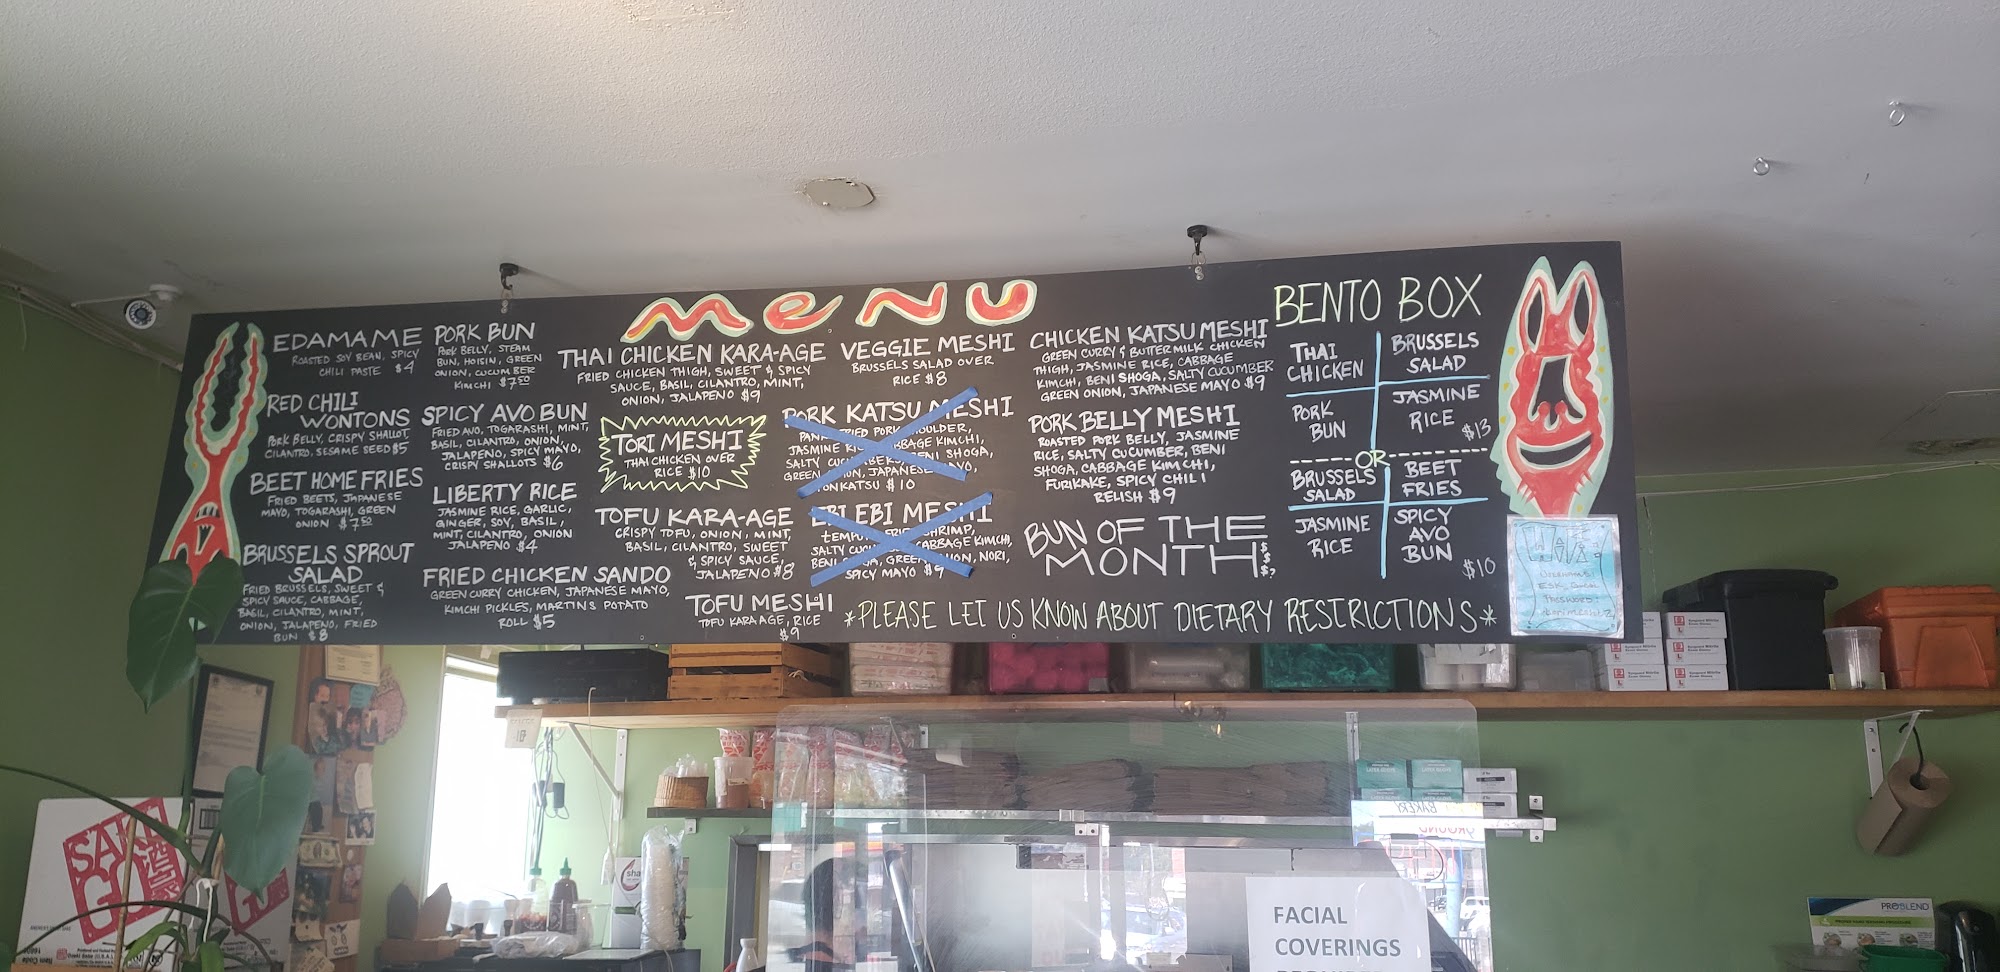 MENU
EDAMAME
ROASTED SOY BEAN, SPICY
CHILI PASTE $4
RED CHILI
WONTONS
PORK BELLY, CRISPY SHALLOT,
CILANTRO, SESAME SEED $5
BEET HOME FRIES
FRIED BEETS, JAPANESE
MAYO, TOGARASHI, GREEN
ONION $7.50
BRUSSELS SPROUT
SALAD
FRIED BRUSSELS, SWEET &
SPICY SAUCE, CABBAGE,
BASIL, CILANTRO, MINT,
ONION, JALAPENO, FRIED
BUN $8
PORK BUN
PORK BELLY, STEAM
BUN, HOISIN, GREEN
ONION, CUCUMBER
KIMCHI $7.50
SPICY AVO BUN
FRIED AVO, TOGARASHI, MINT,
BASIL, CILANTRO, ONION,
JALAPENO, SPICY MAYO,
CRISPY SHALLOTS $6
LIBERTY RICE
JASMINE RICE, GARLIC,
GINGER, SOY, BASIL,
MINT, CILANTRO, ONION
JALAPENO $4
FRIED CHICKEN SANDO
GREEN CURRY CHICKEN, JAPANESE MAYO,
KIMCHI PICKLES, MARTINS POTATO
ROLL $5
THAI CHICKEN KARA-AGE
FRIED CHICKEN THIGH, SWEET & SPICY
SAUCE, BASIL, CILANTRO, MINT,
ONION, JALAPENO $9
TORI MESHI
THAI CHICKEN OVER
RICE $10
TOFU KARA-AGE
CRISPY TOFU, ONION, MINT,
BASIL, CILANTRO, SWEET
& SPICY SAUCE,
JALAPENO $8
TOFU MESHI
TOFU KARAAGE, RICE
$9
VEGGIE MESHI
BRUSSELS SALAD OVER
RICE $8
PORK KATSU MESHI
FRIED PORK SHOULDER,
JASMINE CABBAGE KIMCHI,
SALTY BENI SHOGA,
GREEN ONION, JAPANESE MAYO,
TONKATSU $10
EBI EBI MESHI
TEMPURA FRIED SHRIMP,
SALTY CABBAGE KIMCHI,
BENI SHOGA, GREEN ONION, NORI,
SPICY MAYO $9
CHICKEN KATSU MESHI
GREEN CURRY & BUTTERMILK CHICKEN
THIGH, JASMINE RICE, CABBAGE
KIMCHI, BENI SHOGA, SALTY CUCUMBER
GREEN ONION, JAPANESE MAYO $9
PORK BELLY MESHI
ROASTED PORK BELLY, JASMINE
RICE, SALTY CUCUMBER, BENI
SHOGA, CABBAGE KIMCHI,
FURIKAKE, SPICY CHILI
RELISH $9
BUN OF THE
MONTH $$$?
BENTO BOX
THAI
CHICKEN
BRUSSELS
SALAD
PORK
BUN
JASMINE
RICE
$13
OR
BRUSSELS
SALAD
BEET
FRIES
JASMINE
RICE
SPICY
AVO
BUN
$10
*PLEASE LET US KNOW ABOUT DIETARY RESTRICTIONS*
PROBLEND
FACIAL
COVERINGS